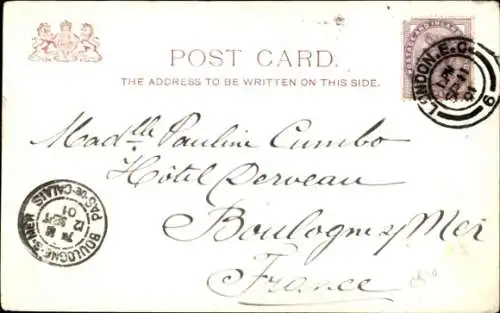 POST CARD.
THE ADDRESS TO BE WRITTEN ON THIS SIDE.
POSTAGE AND INLAND
LONDON.E.C.
1 PM
SP 11
01
9
Madlle Pauline Cumbo
Hôtel Derveau
Boulogne s/Mer
France
BOULOGNE-S-MER
PAS-DE-CALAIS
12 SEPT
01